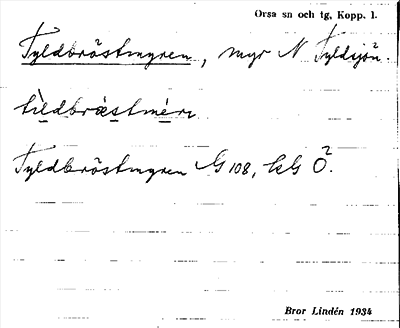 Orsa sn och tg, Kopp. l.
Tyldbröstmyren, myr N Tyldsjön.
tìldbrǽstmèrn
Tyldbröstmyren G 108, kG Ö².
Bror Lindén 1934